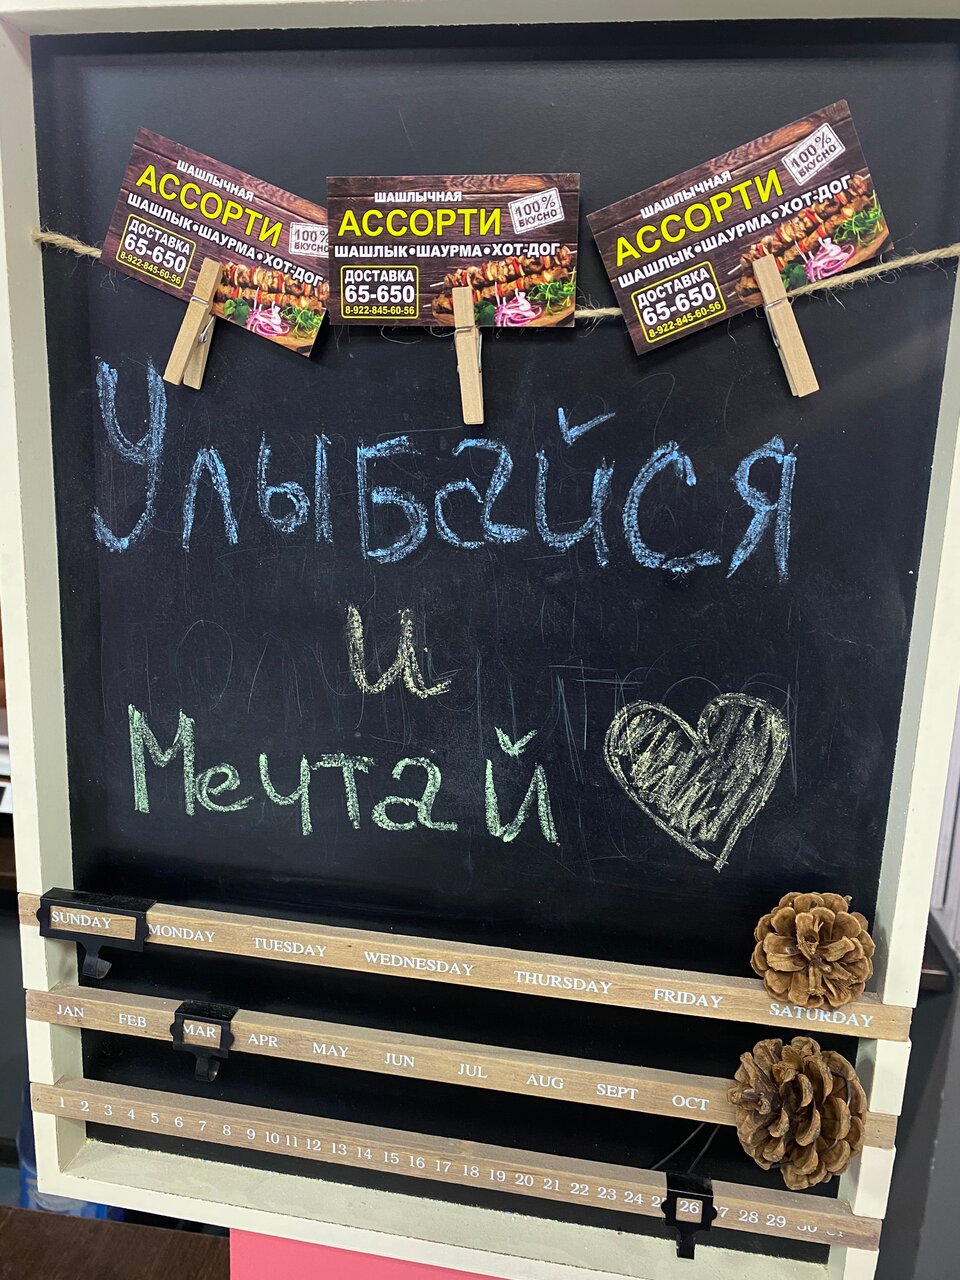 ШАШЛЫЧНАЯ
АССОРТИ
100%
ВКУСНО
ШАШЛЫК•ШАУРМА•ХОТ-ДОГ
ДОСТАВКА
65-650
8-922-845-60-56
ШАШЛЫЧНАЯ
АССОРТИ
100%
ВКУСНО
ШАШЛЫК•ШАУРМА•ХОТ-ДОГ
ДОСТАВКА
65-650
8-922-845-60-56
ШАШЛЫЧНАЯ
АССОРТИ
100%
ВКУСНО
ШАШЛЫК•ШАУРМА•ХОТ-ДОГ
ДОСТАВКА
65-650
8-922-845-60-56
Улыбайся
и
Мечтай
SUNDAY MONDAY TUESDAY WEDNESDAY THURSDAY FRIDAY SATURDAY
JAN FEB MAR APR MAY JUN JUL AUG SEPT OCT
1 2 3 4 5 6 7 8 9 10 11 12 13 14 15 16 17 18 19 20 21 22 23 24 26 28 29